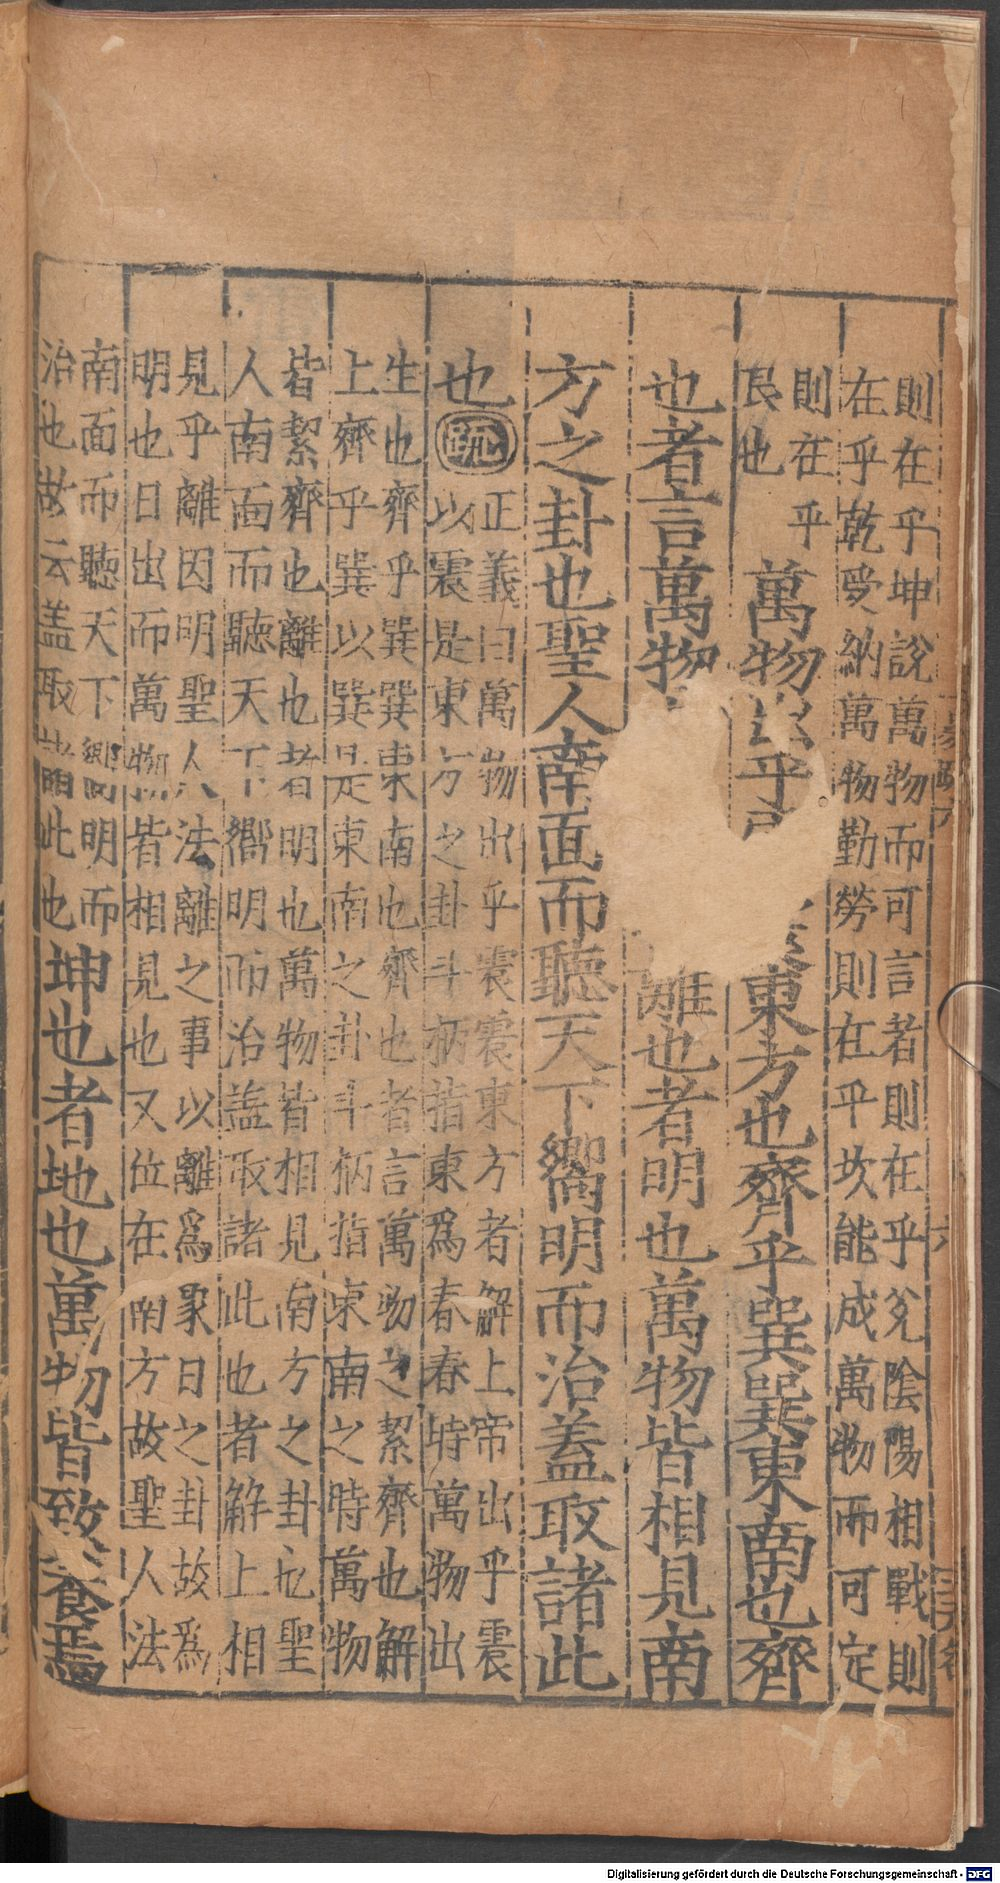 則在乎坤說萬物而可言者則在乎兌陰陽相戰則
在乎乾受納萬物勤勞則在乎坎能成萬物而可定
則在乎
艮也
萬物出乎 東方也齊乎巽巽東南也齊
也者言萬物 離也者明也萬物皆相見南
方之卦也聖人南面而聽天下嚮明而治蓋取諸此
也疏
正義曰萬物出乎震震東方者解上帝出乎震
以震是東方之卦斗柄指東為春春時萬物出
生也齊乎巽巽東南也齊也者言萬物之絜齊也解
上齊乎巽以巽是東南之卦斗柄指東南之時萬物
皆絜齊也離也者明也萬物皆相見南方之卦也聖
人南面而聽天下嚮明而治蓋取諸此也者解上相
見乎離因明聖人法離之事以離為象日之卦故為
明也日出而萬物皆相見也又位在南方故聖人法
南面而聽天下嚮明而
治也故云蓋取諸此也
坤也者地也萬物皆致養焉
Digitalisierung gefördert durch die Deutsche Forschungsgemeinschaft - DFG